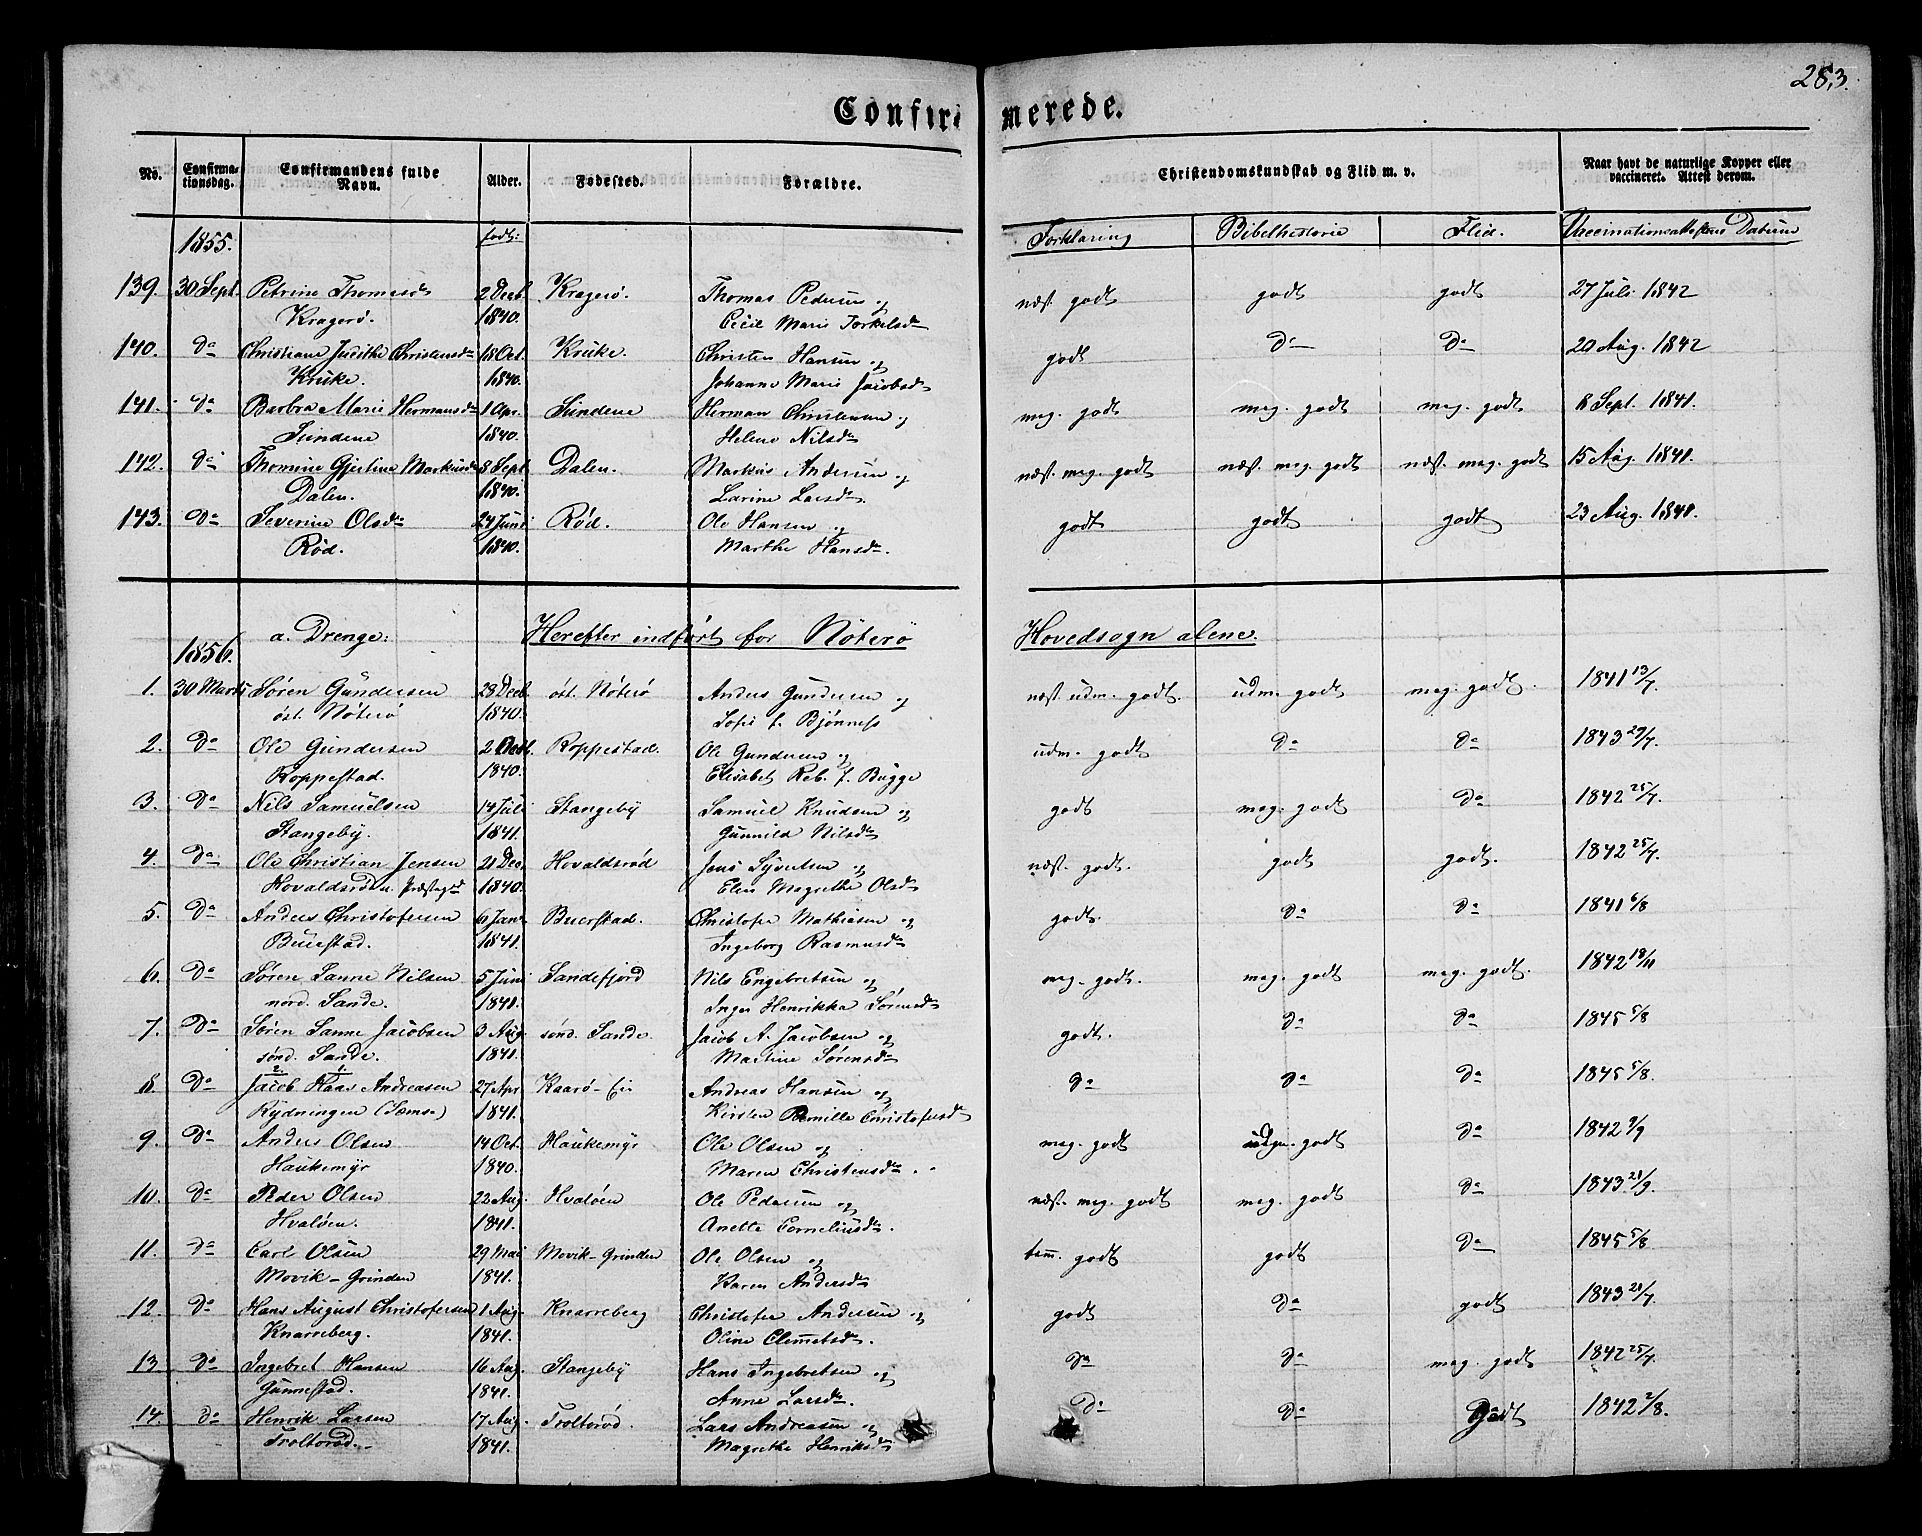 283.
Confirmerede.
No. Confirmationsdag. Confirmandens fulde Navn. Alder. Fødested. Forældre. Christendomskundskab og Flid m. v. Naar havt de naturlige Kopper eller vaccineret. Attest derom.
1855. født: Forklaring Bibelhistorie Flid. Vaccinationsattestens Datum
139. 30 Sept. Petrine Thomasdr 2 Decb. Kragerø. Thomas Pedersen og næst. godt godt godt 27 Juli 1842
Kragerø. 1840. Cecil Marie Torkelsdr
140. Do Christiane Judithe Christensdr 18 Oct. Kruke. Christen Hansen og godt Do Do 20 Aug. 1842
Kruke. 1840. Johanne Marie Jacobsdr
141. Do Barbra Marie Hermansdr 1 Apr. Sundene Herman Christensen og meg. godt meg. godt meg. godt 8 Sept. 1841.
Sundene 1840. Helene Nilsdr
142. Do Thomine Gjertine Markusdr 8 Sept. Dalen. Markus Andersen og næst. meg. godt næst. meg. godt næst. meg. godt 15 Aug. 1841.
Dalen. 1840. Larine Larsdr
143. Do Severine Olsdr 24 Juni Rød. Ole Hansen og godt godt godt 23 Aug. 1841.
Rød. 1840. Marthe Hansdr.
1856. a. Drenge: Herefter indført for Nøterø Hovedsogn alene.
1. 30 Marts Søren Gundersen 28 Decb. øst. Nøterø Anders Gundersen og næst. udm. godt. udm. godt meg. godt. 1841 13/7.
øst. Nøterø 1840. Sofie f. Bjønness
2. Do Ole Gundersen 2 Octb. Roppestad. Ole Gundersen og udm. godt Do Do 1843 29/7.
Roppestad. 1840. Elisabet Reb. f. Bugge
3. Do Nils Samuelsen 14 Juli Stangeby Samuel Knudsen og godt meg. godt Do 1842 25/7.
Stangeby. 1841. Gunnild Nilsdr
4. Do Ole Christian Jensen 21 Dec. Hovaldsrød Jens Syvertsen og næst. godt. godt godt. 1842 25/7.
Hovaldsrød u. Præstegrd 1840. Elen Magrethe Olsdr
5. Do Anders Christofersen 6 Janr. Buerstad. Christofer Mathiasen og godt. Do Do 1841 6/8
Buerstad. 1841. Ingeborg Rasmusdr
6. Do Søren Sanne Nilsen 5 Juni Sandefjord Nils Engebretsen og meg. godt. meg. godt meg. godt. 1842 18/11
nord. Sande. 1841. Inger Henrikka Sørensdr
7. Do Søren Sanne Jacobsen 3 Aug. sønd. Sande. Jacob A. Jacobsen og godt. Do Do 1845 5/8
sønd. Sande. 1841. Martine Sørensdr
8. Do Jacob Haas Andreasen 27 Apr. Kaarø-Eie Andreas Hansen og Do Do Do 1845 5/8.
Rydningen (Sems.) 1841. Kirsten Pernille Christofersdr
9. Do Anders Olsen 14 Oct. Haukemyr Ole Olsen og meg. godt udm. godt Do 1842 9/9
Haukemyr 1840. Maren Christensdr
10. Do Peder Olsen 22 Aug. Hvaløen Ole Pedersen og næst. meg. godt meg. godt Do 1843 21/9.
Hvaløen. 1841. Anette Corneliusdr.
11. Do Carl Olsen 29 Mai Movik-Grinden Ole Olsen og tem. godt godt Do 1845 5/8
Movik-Grinden 1841. Karen Andersdr
12. Do Hans August Christofersen 1 Aug. Knarreberg Christofer Andersen og godt Do godt 1843 21/7.
Knarreberg. 1841. Oline Clemetsdr.
13 Do Ingebret Hansen 16 Aug. Stangeby Hans Ingebretsen og Do Do meg. godt 1842 25/7.
Gunnestad. 1841. Anne Larsdr.
14. Do Henrik Larsen 17 Aug. Troltorød. Lars Andreasen og Do Do Godt 1842 2/8.
Troltorød. 1841. Magrethe Henriksdr